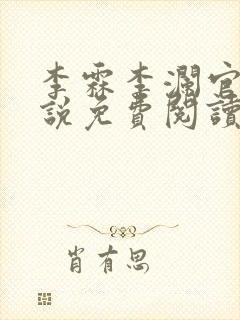 李霖李瀾官
說免費閱讀
肖有思